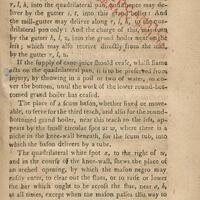 r, l, h, into the quadrilateral pan, may deli-
ver by the gutter i, t, into this boiler: And
the mill-gutter may deliver along r, l, h, to the qua-
drilateral pan only: And the charge of this, may from
by the gutter h, l, u, into the grand boiler next on the
left; which may also receive directly from the mill
by the gutter r, l, u.
If the supply of cane-juice should cease, whilst flame
acts on the quadrilateral pan, it is to be preserved from
injury, by throwing in a pail or two of water, to co-
ver the bottom, until the work of the lower round-bot-
tomed grand boiler has ceased.
The place of a scum bason, whether fixed or move-
able, to serve for the third teach, and also for the round-
bottomed grand boiler, near this teach on the left, ap-
pears by the small circular spot at w, where there is a
niche in the knee-wall beneath, for the scum tub, into
which the bason delivers by a tube.
The quadrilateral white spot x, to the right of w,
and in the course of the knee-wall, shews the place of
an arched opening, by which the mason negro may
easily enter, to clear out the flues, or to raise or lower
the bar which ought to be across the flue, near z, h,
at all times, except when the mason passes this way to